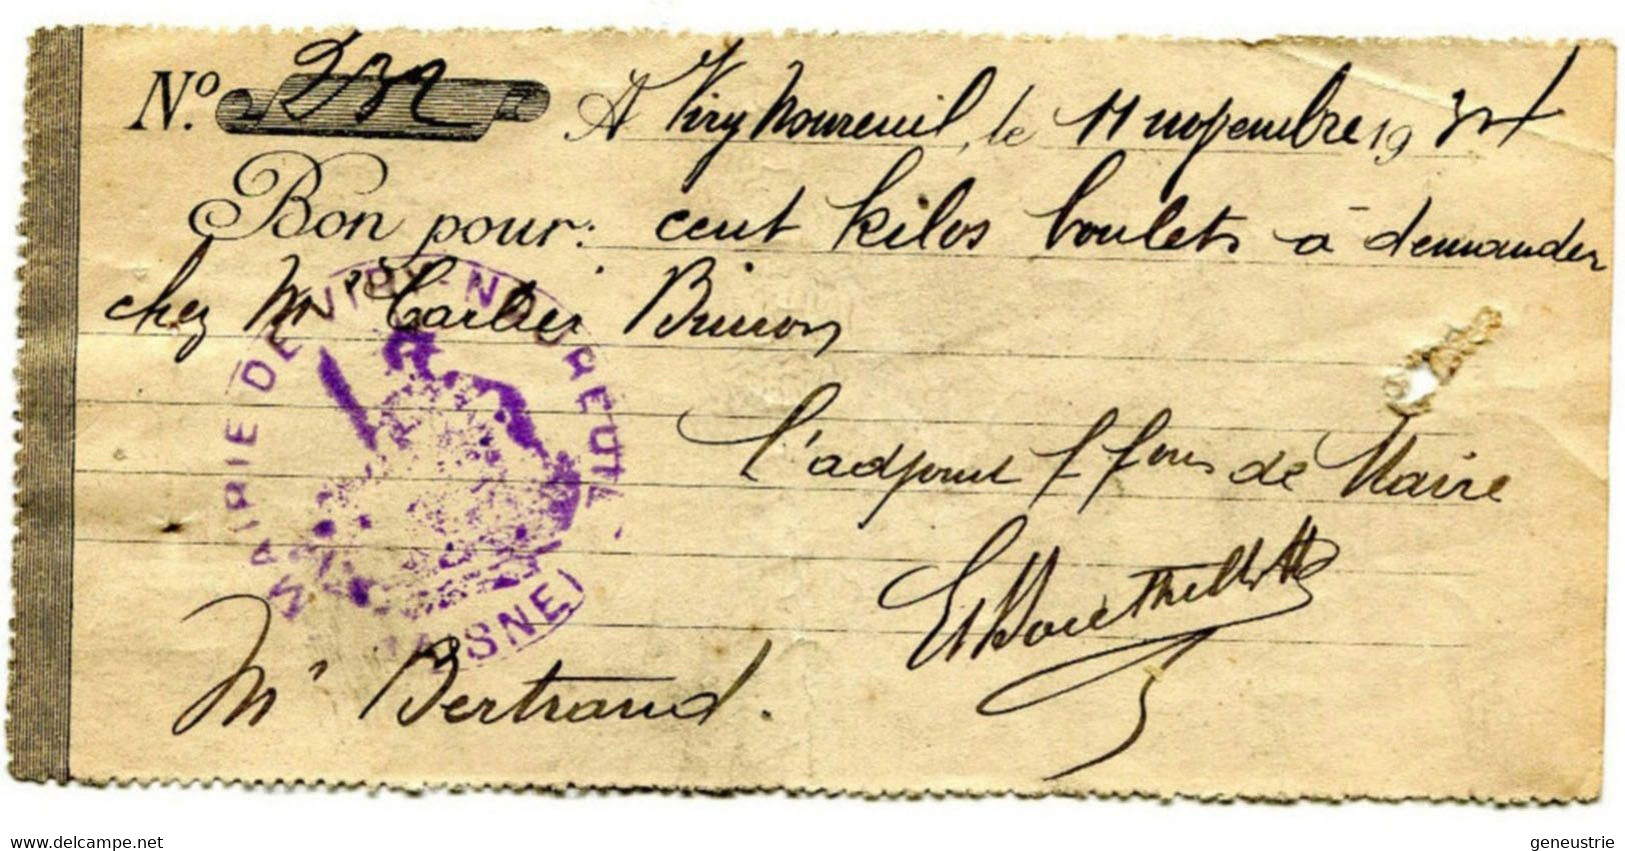 N° 232 A Viry Noureuil, le 11 novembre 1934
Bon pour: cent kilos boulets à demander
chez Mr Carlier
L'adjoint f fons de Maire
Mr Bertrand.
MAIRIE DE VIRY-NOUREUIL
(AISNE)
www.delcampe.net
geneustrie